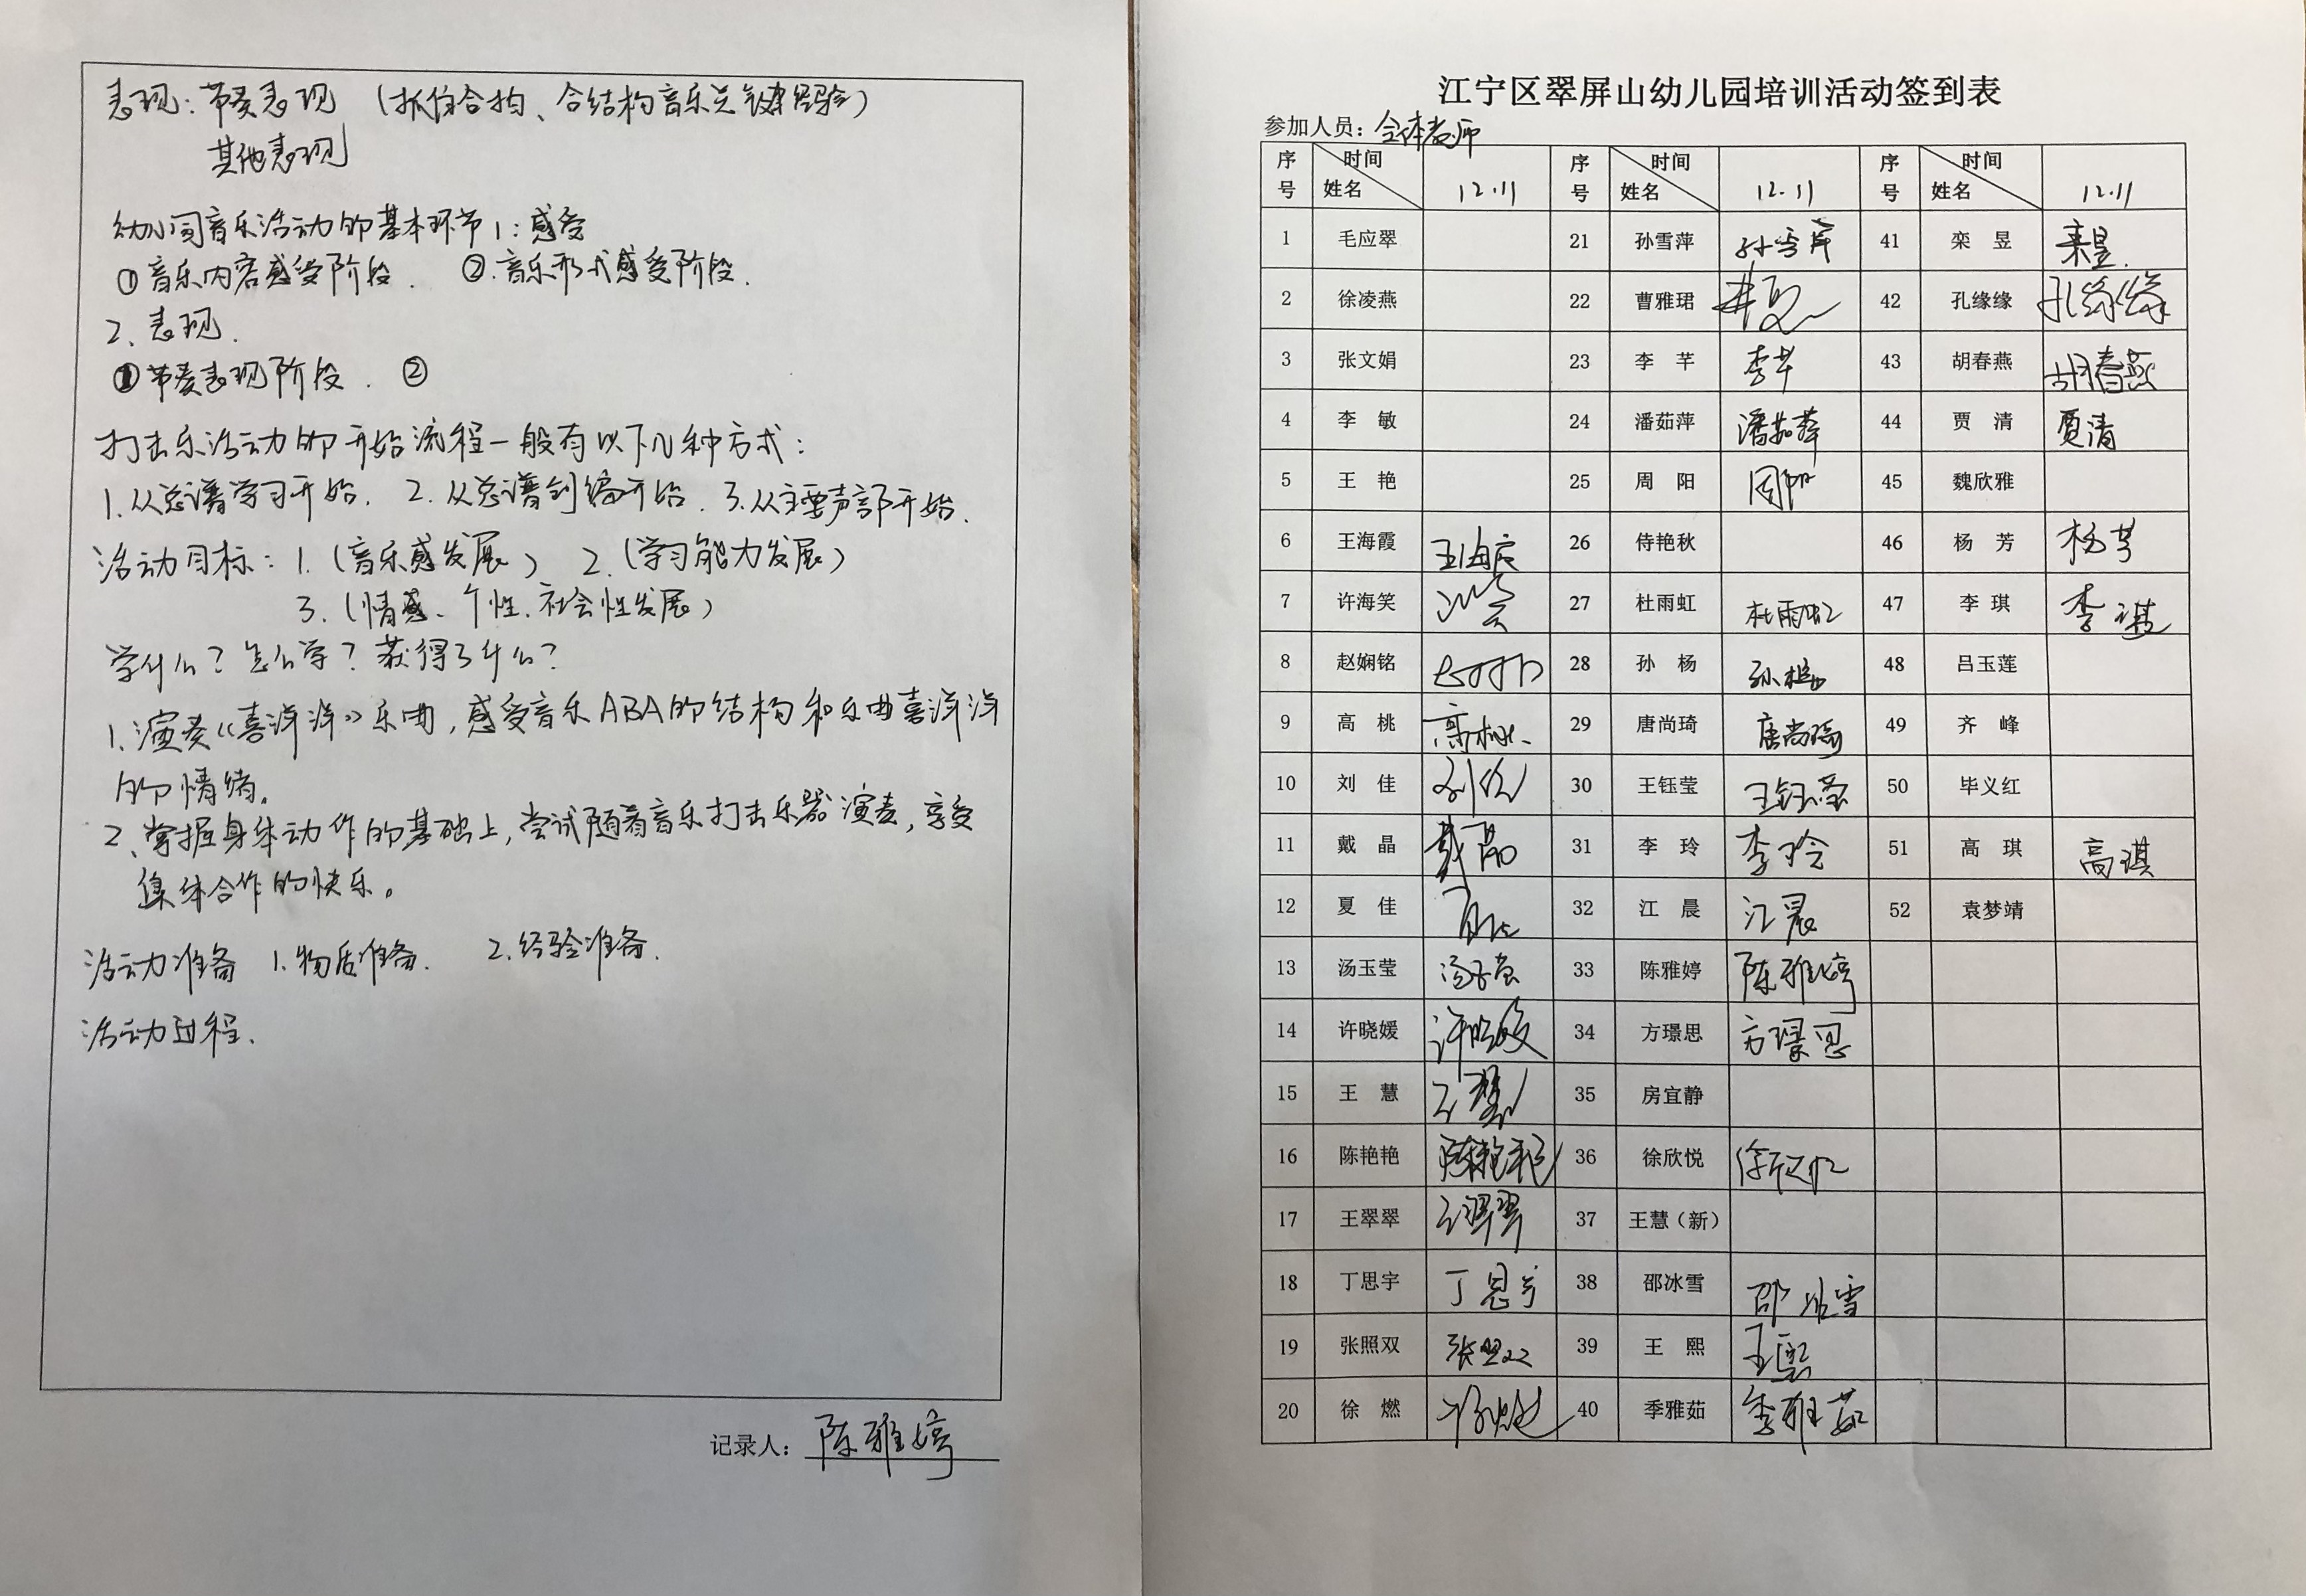 表现：节奏表现 （抓住合拍、合结构音乐关键经验）
其他表现
幼儿园音乐活动的基本环节1：感受
①音乐内容感受阶段． ②．音乐形式感受阶段．
2．表现．
①节奏表现阶段． ②
打击乐活动的开始流程一般有以下几种方式：
1．从总谱学习开始． 2．从总谱创编开始．3．从主要声部开始．
活动目标：1．（音乐感发展） 2．（学习能力发展）
3．（情感、个性、社会性发展）
学什么？怎么学？获得了什么？
1、演奏《喜洋洋》乐曲，感受音乐ABA的结构和乐曲喜洋洋
的情绪。
2、掌握身体动作的基础上，尝试随着音乐打击乐器演奏，享受
集体合作的快乐。
活动准备 1．物质准备． 2．经验准备．
活动过程．
记录人：陈雅婷
江宁区翠屏山幼儿园培训活动签到表
参加人员：全体教师
序号 时间 姓名 12.11 序号 时间 姓名 12.11 序号 时间 姓名 12.11
1 毛应翠 21 孙雪萍 孙雪萍 41 栾昱 栾昱
2 徐凌燕 22 曹雅珺 42 孔缘缘 孔缘缘
3 张文娟 23 李芊 李芊 43 胡春燕 胡春燕
4 李敏 24 潘茹萍 潘茹萍 44 贾清 贾清
5 王艳 25 周阳 周阳 45 魏欣雅
6 王海霞 王海霞 26 侍艳秋 46 杨芳 杨芳
7 许海笑 27 杜雨虹 杜雨虹 47 李琪 李琪
8 赵娴铭 28 孙杨 孙杨 48 吕玉莲
9 高桃 高桃 29 唐尚琦 唐尚琦 49 齐峰
10 刘佳 刘佳 30 王钰莹 王钰莹 50 毕义红
11 戴晶 戴晶 31 李玲 李玲 51 高琪 高琪
12 夏佳 夏佳 32 江晨 江晨 52 袁梦靖
13 汤玉莹 汤玉莹 33 陈雅婷 陈雅婷
14 许晓媛 许晓媛 34 方璟思 方璟思
15 王慧 王慧 35 房宜静
16 陈艳艳 陈艳艳 36 徐欣悦 徐欣悦
17 王翠翠 王翠翠 37 王慧（新）
18 丁思宇 丁思宇 38 邵冰雪 邵冰雪
19 张照双 张照双 39 王熙 王熙
20 徐燃 徐燃 40 季雅茹 季雅茹